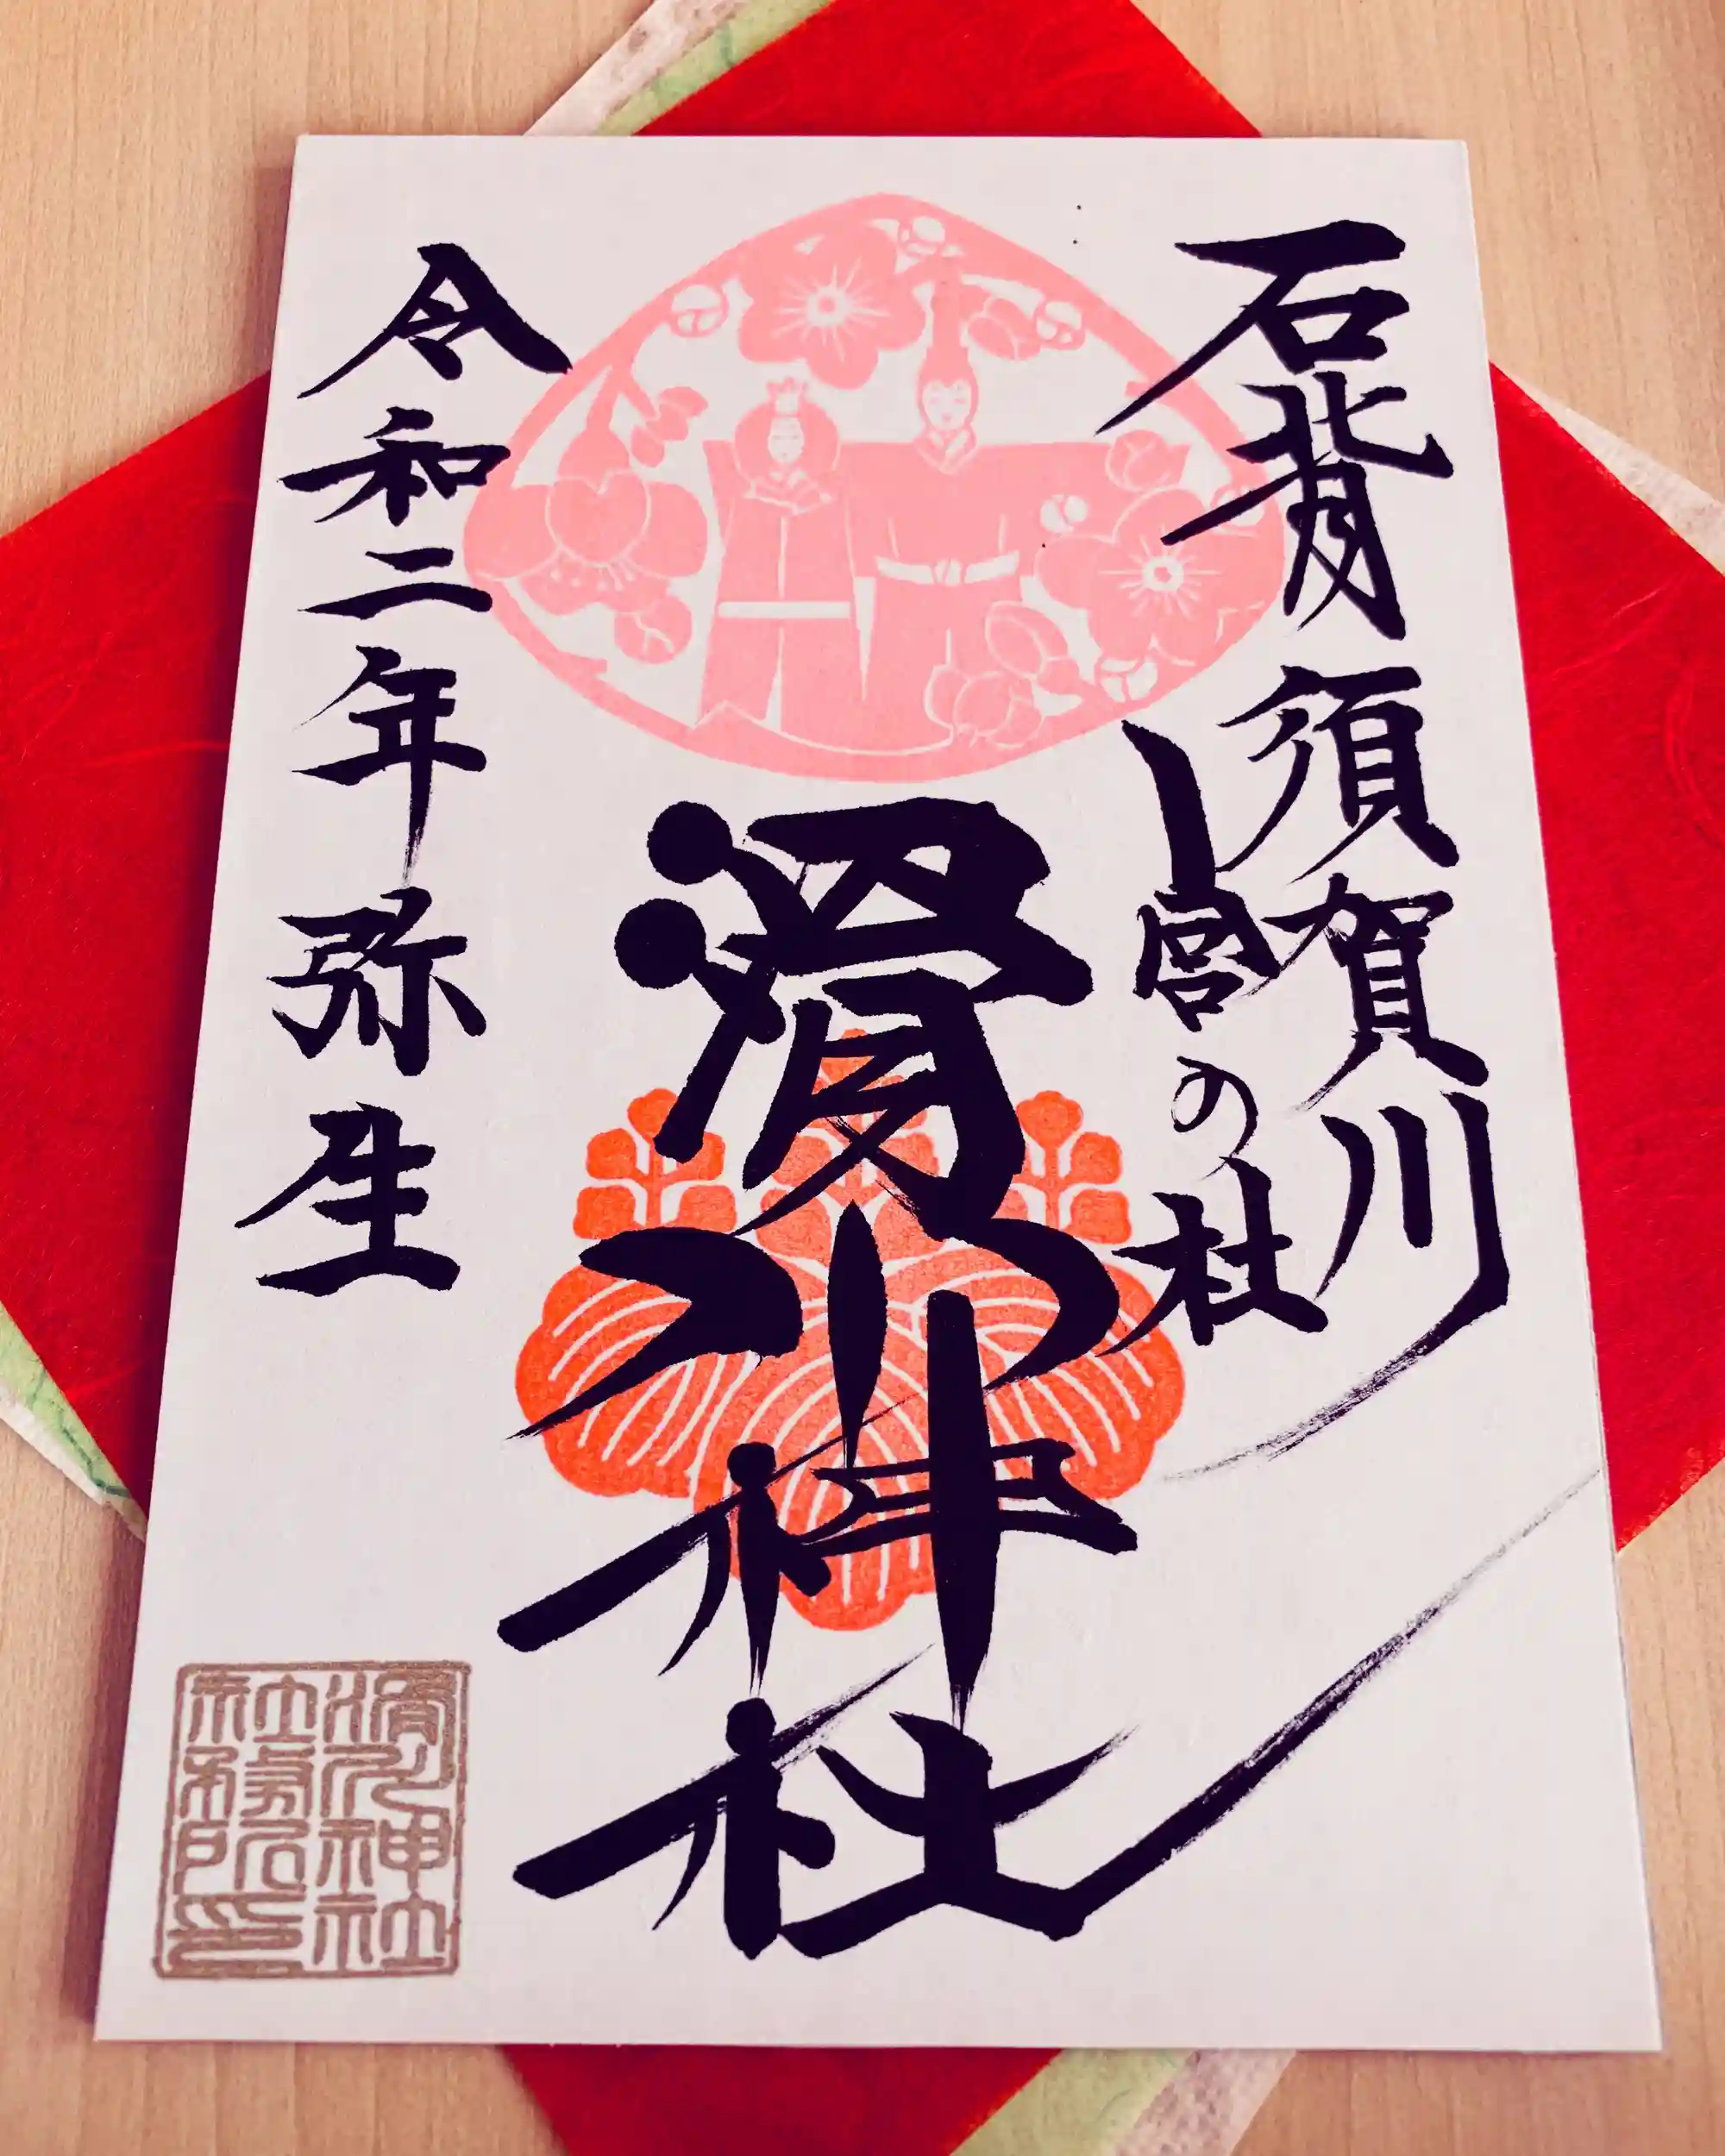 石背 須賀川
宮の杜
滑川神社
令和二年 弥生
滑川神社
社務所印